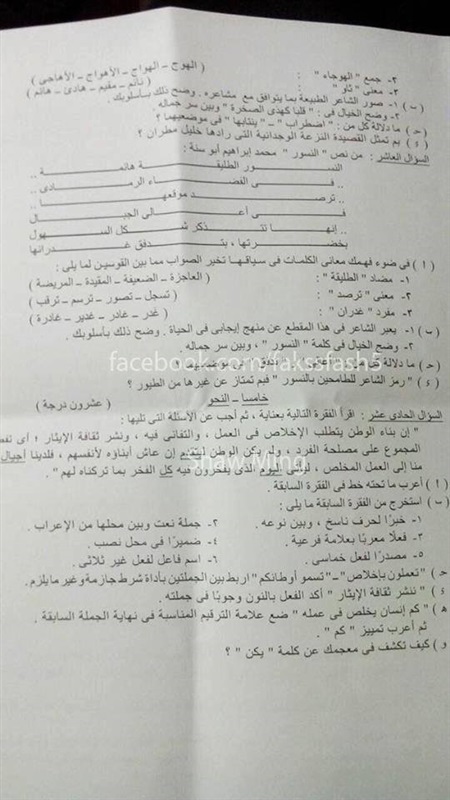 ٢- جمع " الهوجاء " : ( الهوج – الهواج – الأهواج – الأهاجى )
٣- معنى " ثاو " : ( نائم – مقيم – هادئ – هائم )
( ب ) ١- صور الشاعر الطبيعة بما يتوافق مع مشاعره . وضح ذلك بأسلوبك .
٢- وضح الخيال فى : " قلبا كهذى الصخرة " وبين سر جماله
( حـ ) ما دلالة كل من : " اضطراب " – " ينتابها " فى موضعيهما ؟
( ء ) بم تمثل القصيدة النزعة الوجدانية التى رادها خليل مطران ؟
السؤال العاشر : من نص " النسور " محمد إبراهيم أبو سنة :
النسور الطليقة هائمة ..
فى الفضاء الرمادى ..
ترصد موقعها
فى أعالى الجبال
.. إنها تتذكر شكل السهول
بخضرتها ، بتدفق غدرانها
( أ ) فى ضوء فهمك معانى الكلمات فى سياقها تخير الصواب مما بين القوسين لما يلى :
١- مضاد " الطليقة " : ( العاجزة – الضعيفة – المقيدة – المريضة )
٢- معنى " ترصد " : ( تسجل – تصور – ترسم – ترقب )
٣- مفرد " غدران " : ( غدر – غادر – غدير – غادرة )
( ب ) ١- يعبر الشاعر فى هذا المقطع عن منهج إيجابى فى الحياة . وضح ذلك بأسلوبك .
٢- وضح الخيال فى كلمة " النسور " ، وبين سر جماله .
( حـ ) ما دلالة
facebook.com/faksafash5
( ء ) " رمز الشاعر للطامحين بالنسور " فبم تمتاز عن غيرها من الطيور ؟
خامسا – النحو ( عشرون درجة )
السؤال الحادى عشر : اقرأ الفقرة التالية بعناية ، ثم أجب عن الأسئلة التى تليها :
" إن بناء الوطن يتطلب الإخلاص فى العمل ، والتفانى فيه ، ونشر ثقافة الإيثار ؛ أى
المجموع على مصلحة الفرد ، ولم يكن الوطن ليتقدم إن عاش أبناؤه لأنفسهم ، فلدينا أجيال
منا إلى العمل المخلص ، ليوم الذى يفخرون فيه كل الفخر بما تركناه لهم " .
Shaw Ming
( أ ) أعرب ما تحته خط فى الفقرة السابقة .
( ب ) استخرج من الفقرة السابقة ما يلى :
١- خبرًا لحرف ناسخ ، وبين نوعه . ٢- جملة نعت وبين محلها من الإعراب .
٣- فعلًا معربًا بعلامة فرعية . ٤- ضميرًا فى محل نصب .
٥- مصدرًا لفعل خماسى . ٦- اسم فاعل لفعل غير ثلاثى .
( حـ ) " تعملون بإخلاص " – " تسمو أوطانكم " اربط بين الجملتين بأداة شرط جازمة وغير ما يلزم .
( ء ) " ننشر ثقافة الإيثار " أكد الفعل بالنون وجوبًا فى جملته .
( هـ ) " كم إنسان يخلص فى عمله " ضع علامة الترقيم المناسبة فى نهاية الجملة السابقة .
ثم أعرب تمييز " كم " .
( و ) كيف تكشف فى معجمك عن كلمة " يكن " ؟